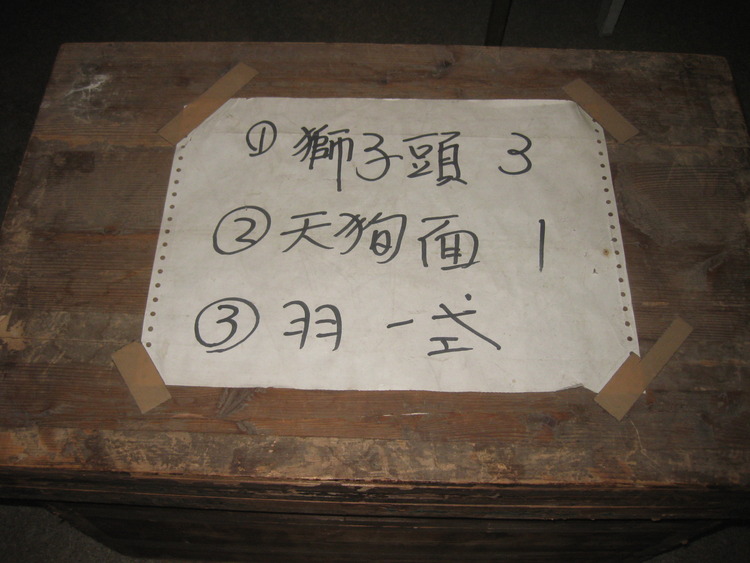 ① 獅子頭 3
② 天狗面 1
③ 羽 一式